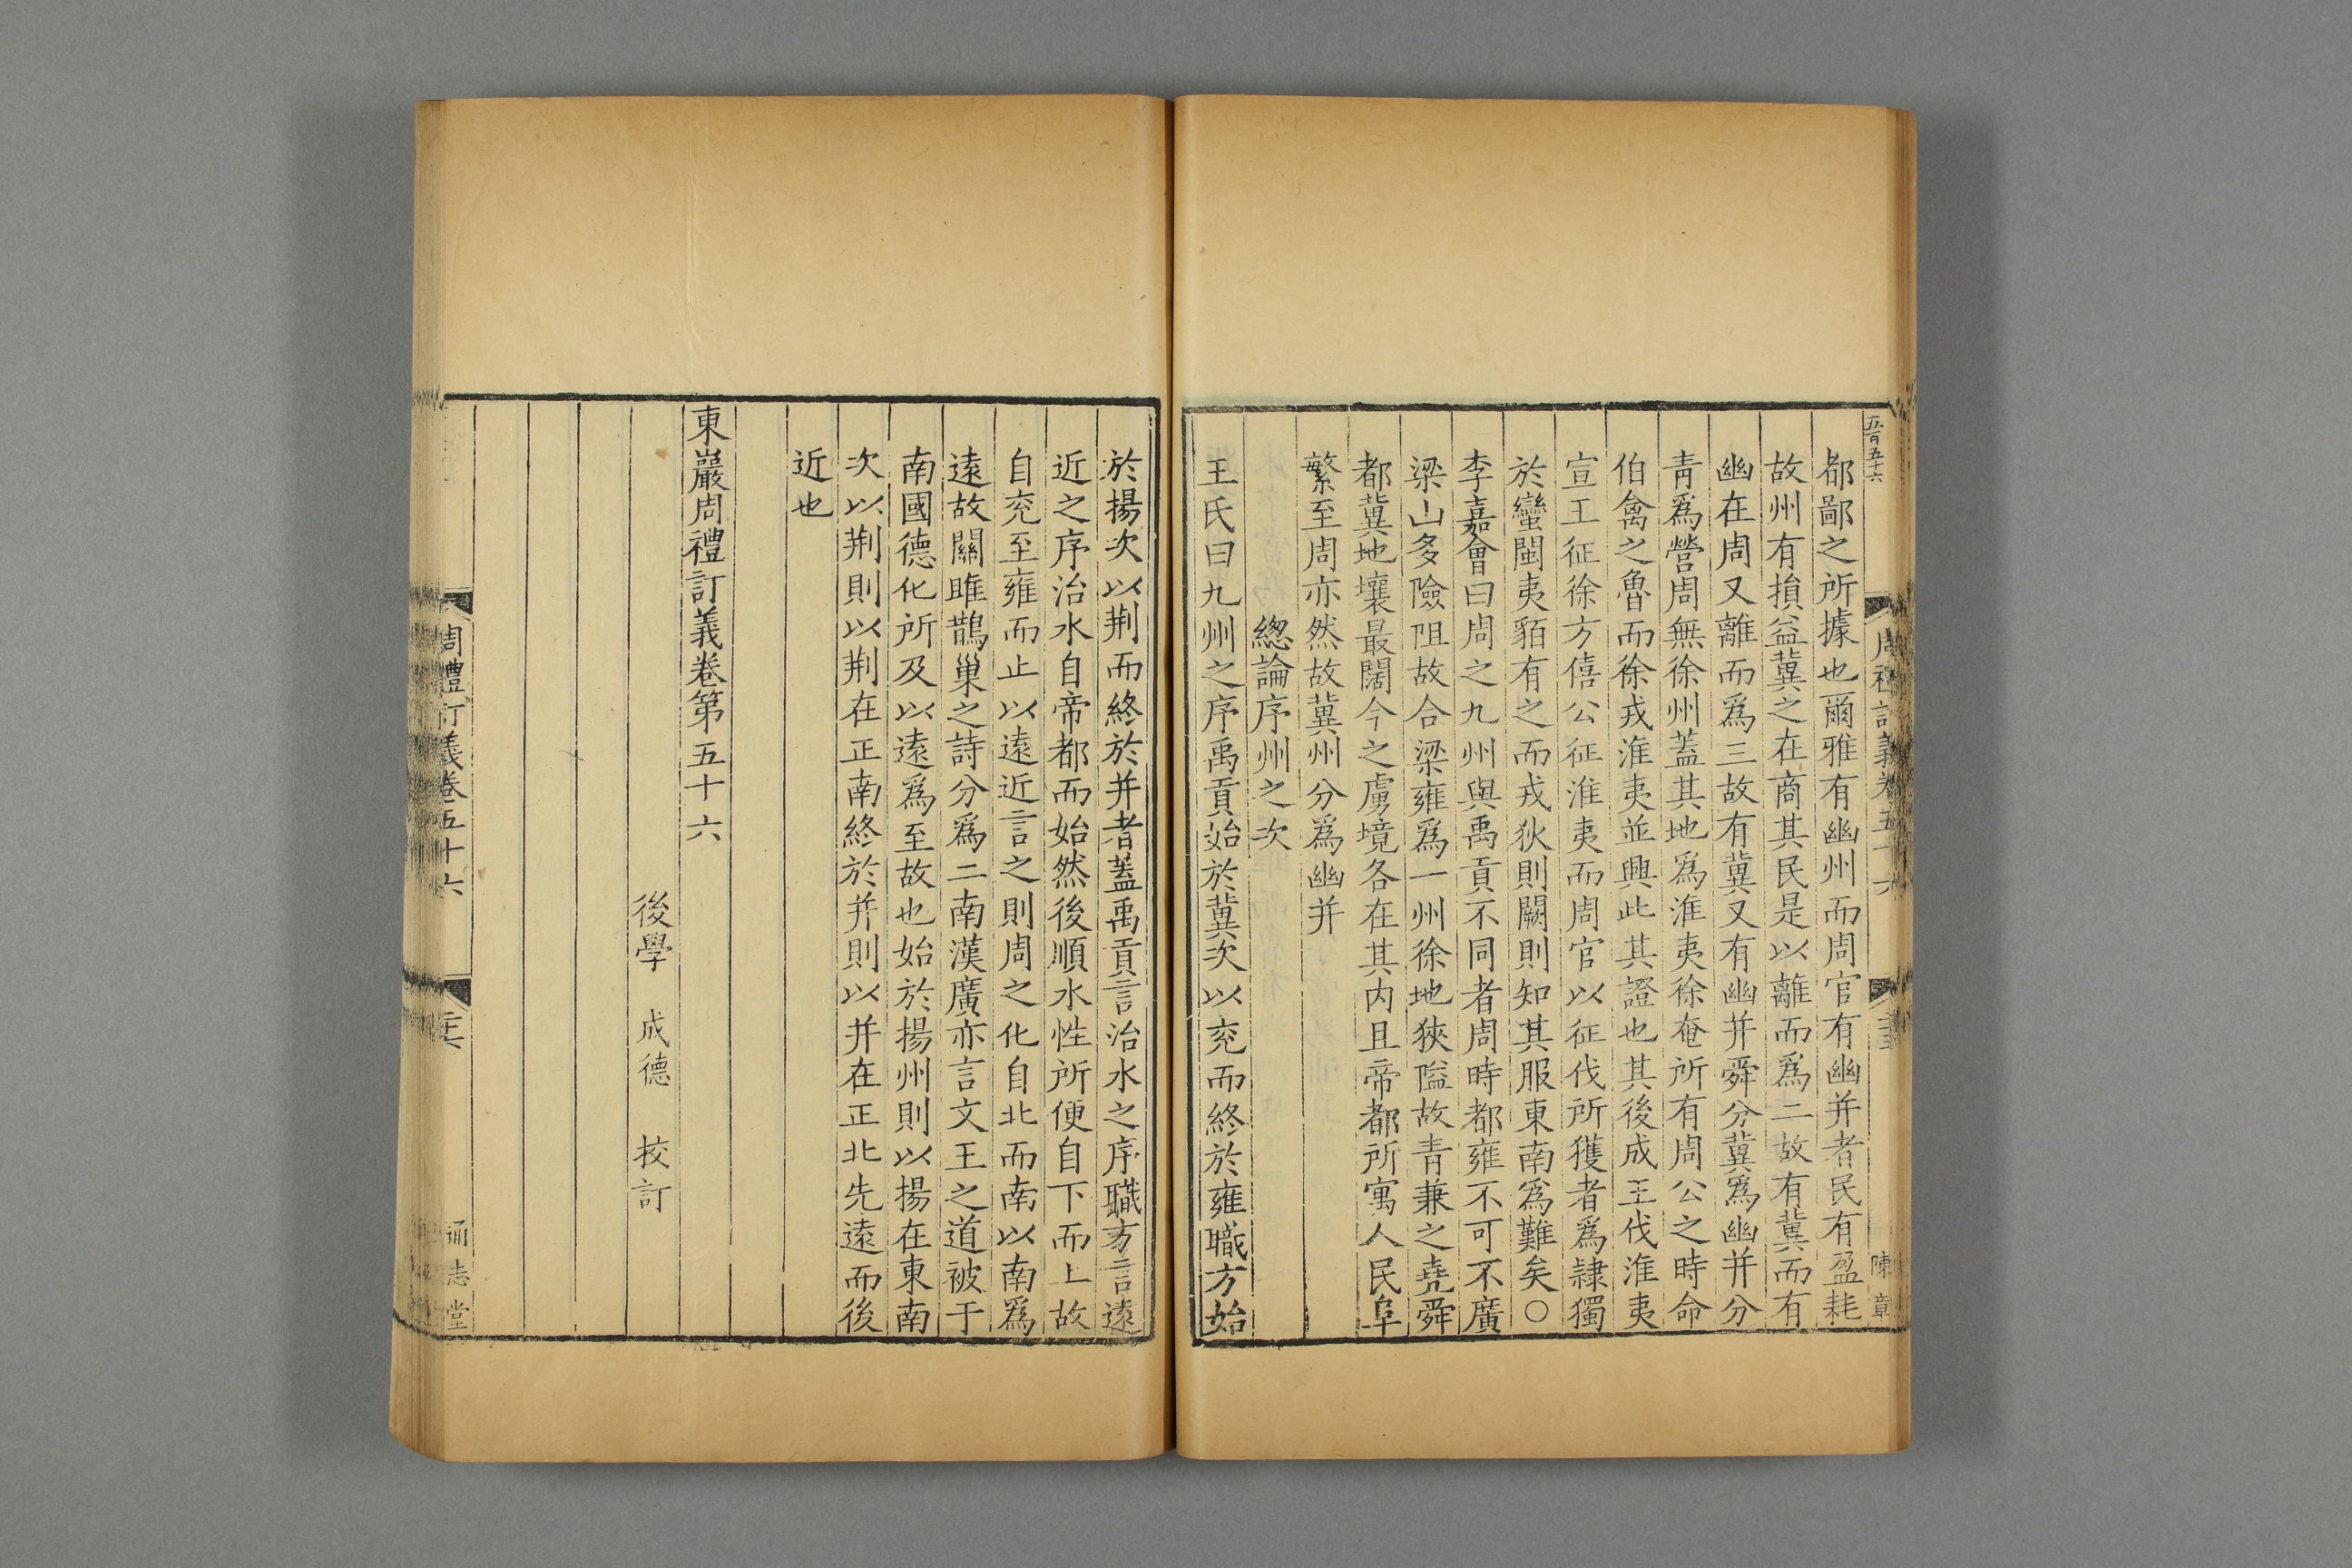 五百五十六
周禮訂義卷五十六
陳章
都鄙之所據也爾雅有幽州而周官有幽并者民有盈耗
故州有損益冀之在商其民是以離而爲二故有冀而有
幽在周又離而爲三故有冀又有幽并舜分冀爲幽并分
青爲營周無徐州蓋其地爲淮夷徐奄所有周公之時命
伯禽之魯而徐戎淮夷並興此其證也其後成王伐淮夷
宣王征徐方僖公征淮夷而周官以征伐所獲者爲隷獨
於蠻閩夷貊有之而戎狄則闕則知其服東南爲難矣○
李嘉會曰周之九州與禹貢不同者周時都雍不可不廣
梁山多險阻故合梁雍爲一州徐地狹隘故青兼之堯舜
都冀地壤最闊今之虜境各在其内且帝都所寓人民阜
繁至周亦然故冀州分爲幽并
緫論序州之次
王氏曰九州之序禹貢始於冀次以兖而終於雍職方始
於揚次以荆而終於并者蓋禹貢言治水之序職方言遠
近之序治水自帝都而始然後順水性所便自下而上故
自兖至雍而止以遠近言之則周之化自北而南以南爲
遠故關雎鵲巢之詩分爲二南漢廣亦言文王之道被于
南國德化所及以遠爲至故也始於揚州則以揚在東南
次以荆則以荆在正南終於并則以并在正北先遠而後
近也
東巖周禮訂義卷第五十六
後學 成德 挍訂
周禮訂義卷五十六
通志堂